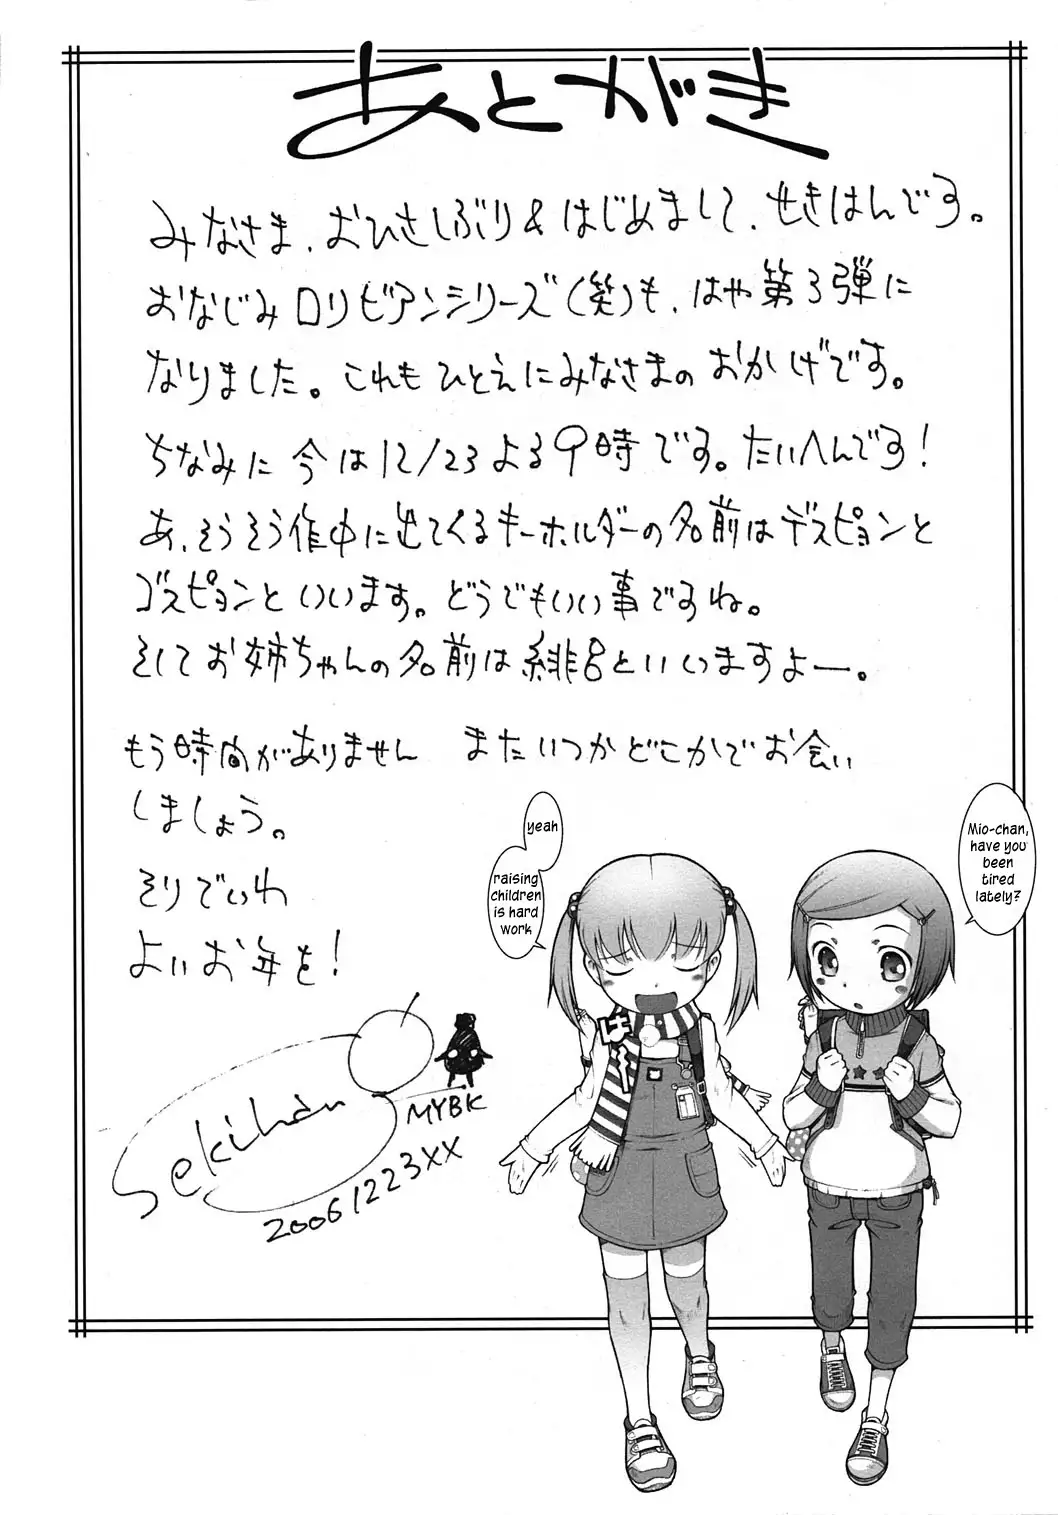 あとがき
みなさま、おひさしぶり&はじめまして、せきはんです。
おなじみロリビアンシリーズ(笑)も、はや第3弾に
なりました。これもひとえにみなさまのおかげです。
ちなみに今は12/23よる9時です。たいへんです!
あ、そうそう作中に出てくるキーホルダーの名前はデスピョンと
ゴスピョンといいます。どうでもいい事ですね。
そしてお姉ちゃんの名前は緋呂といいますよー。
もう時間がありません またいつかどこかでお会い
しましょう。
そりでいわ
よいお年を!
Sekihan
MYBK
20061223XX
Mio-chan,
have you
been
tired
lately?
yeah
raising
children
is hard
work
は〜